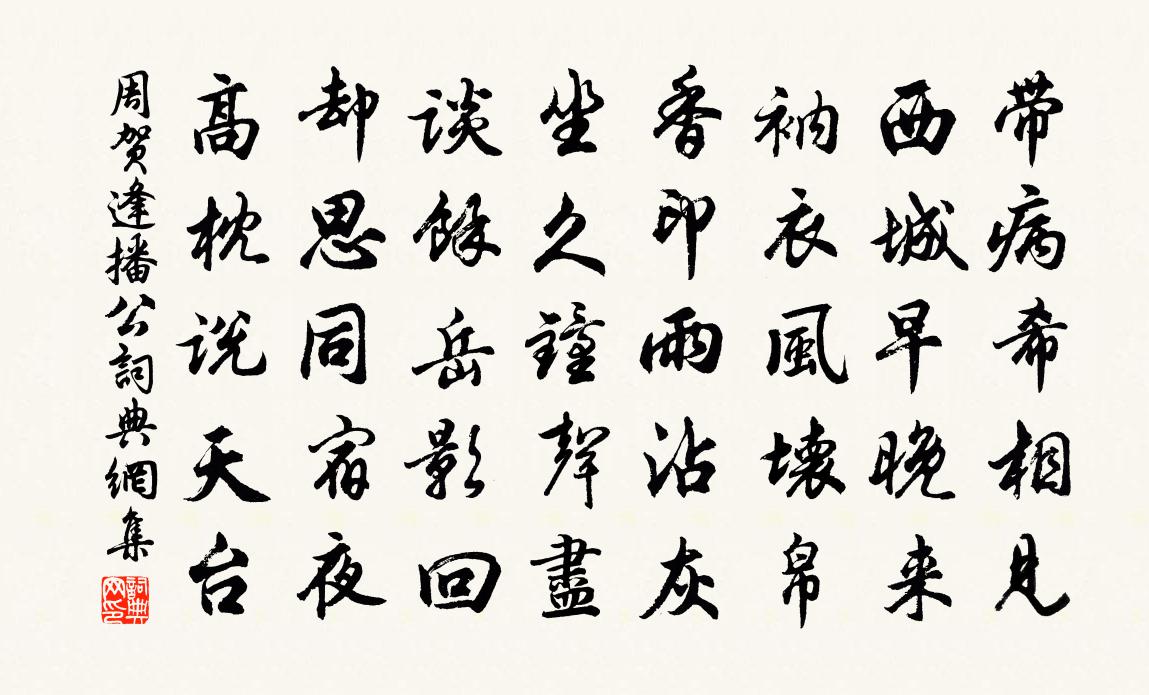 带病希相見
西城早晚来
衲衣風壊帛
香印雨沾灰
坐久鐘聲盡
談餘岳影回
却思同宿夜
高枕説天台
周贺逢播公詞典網集
詞典網印